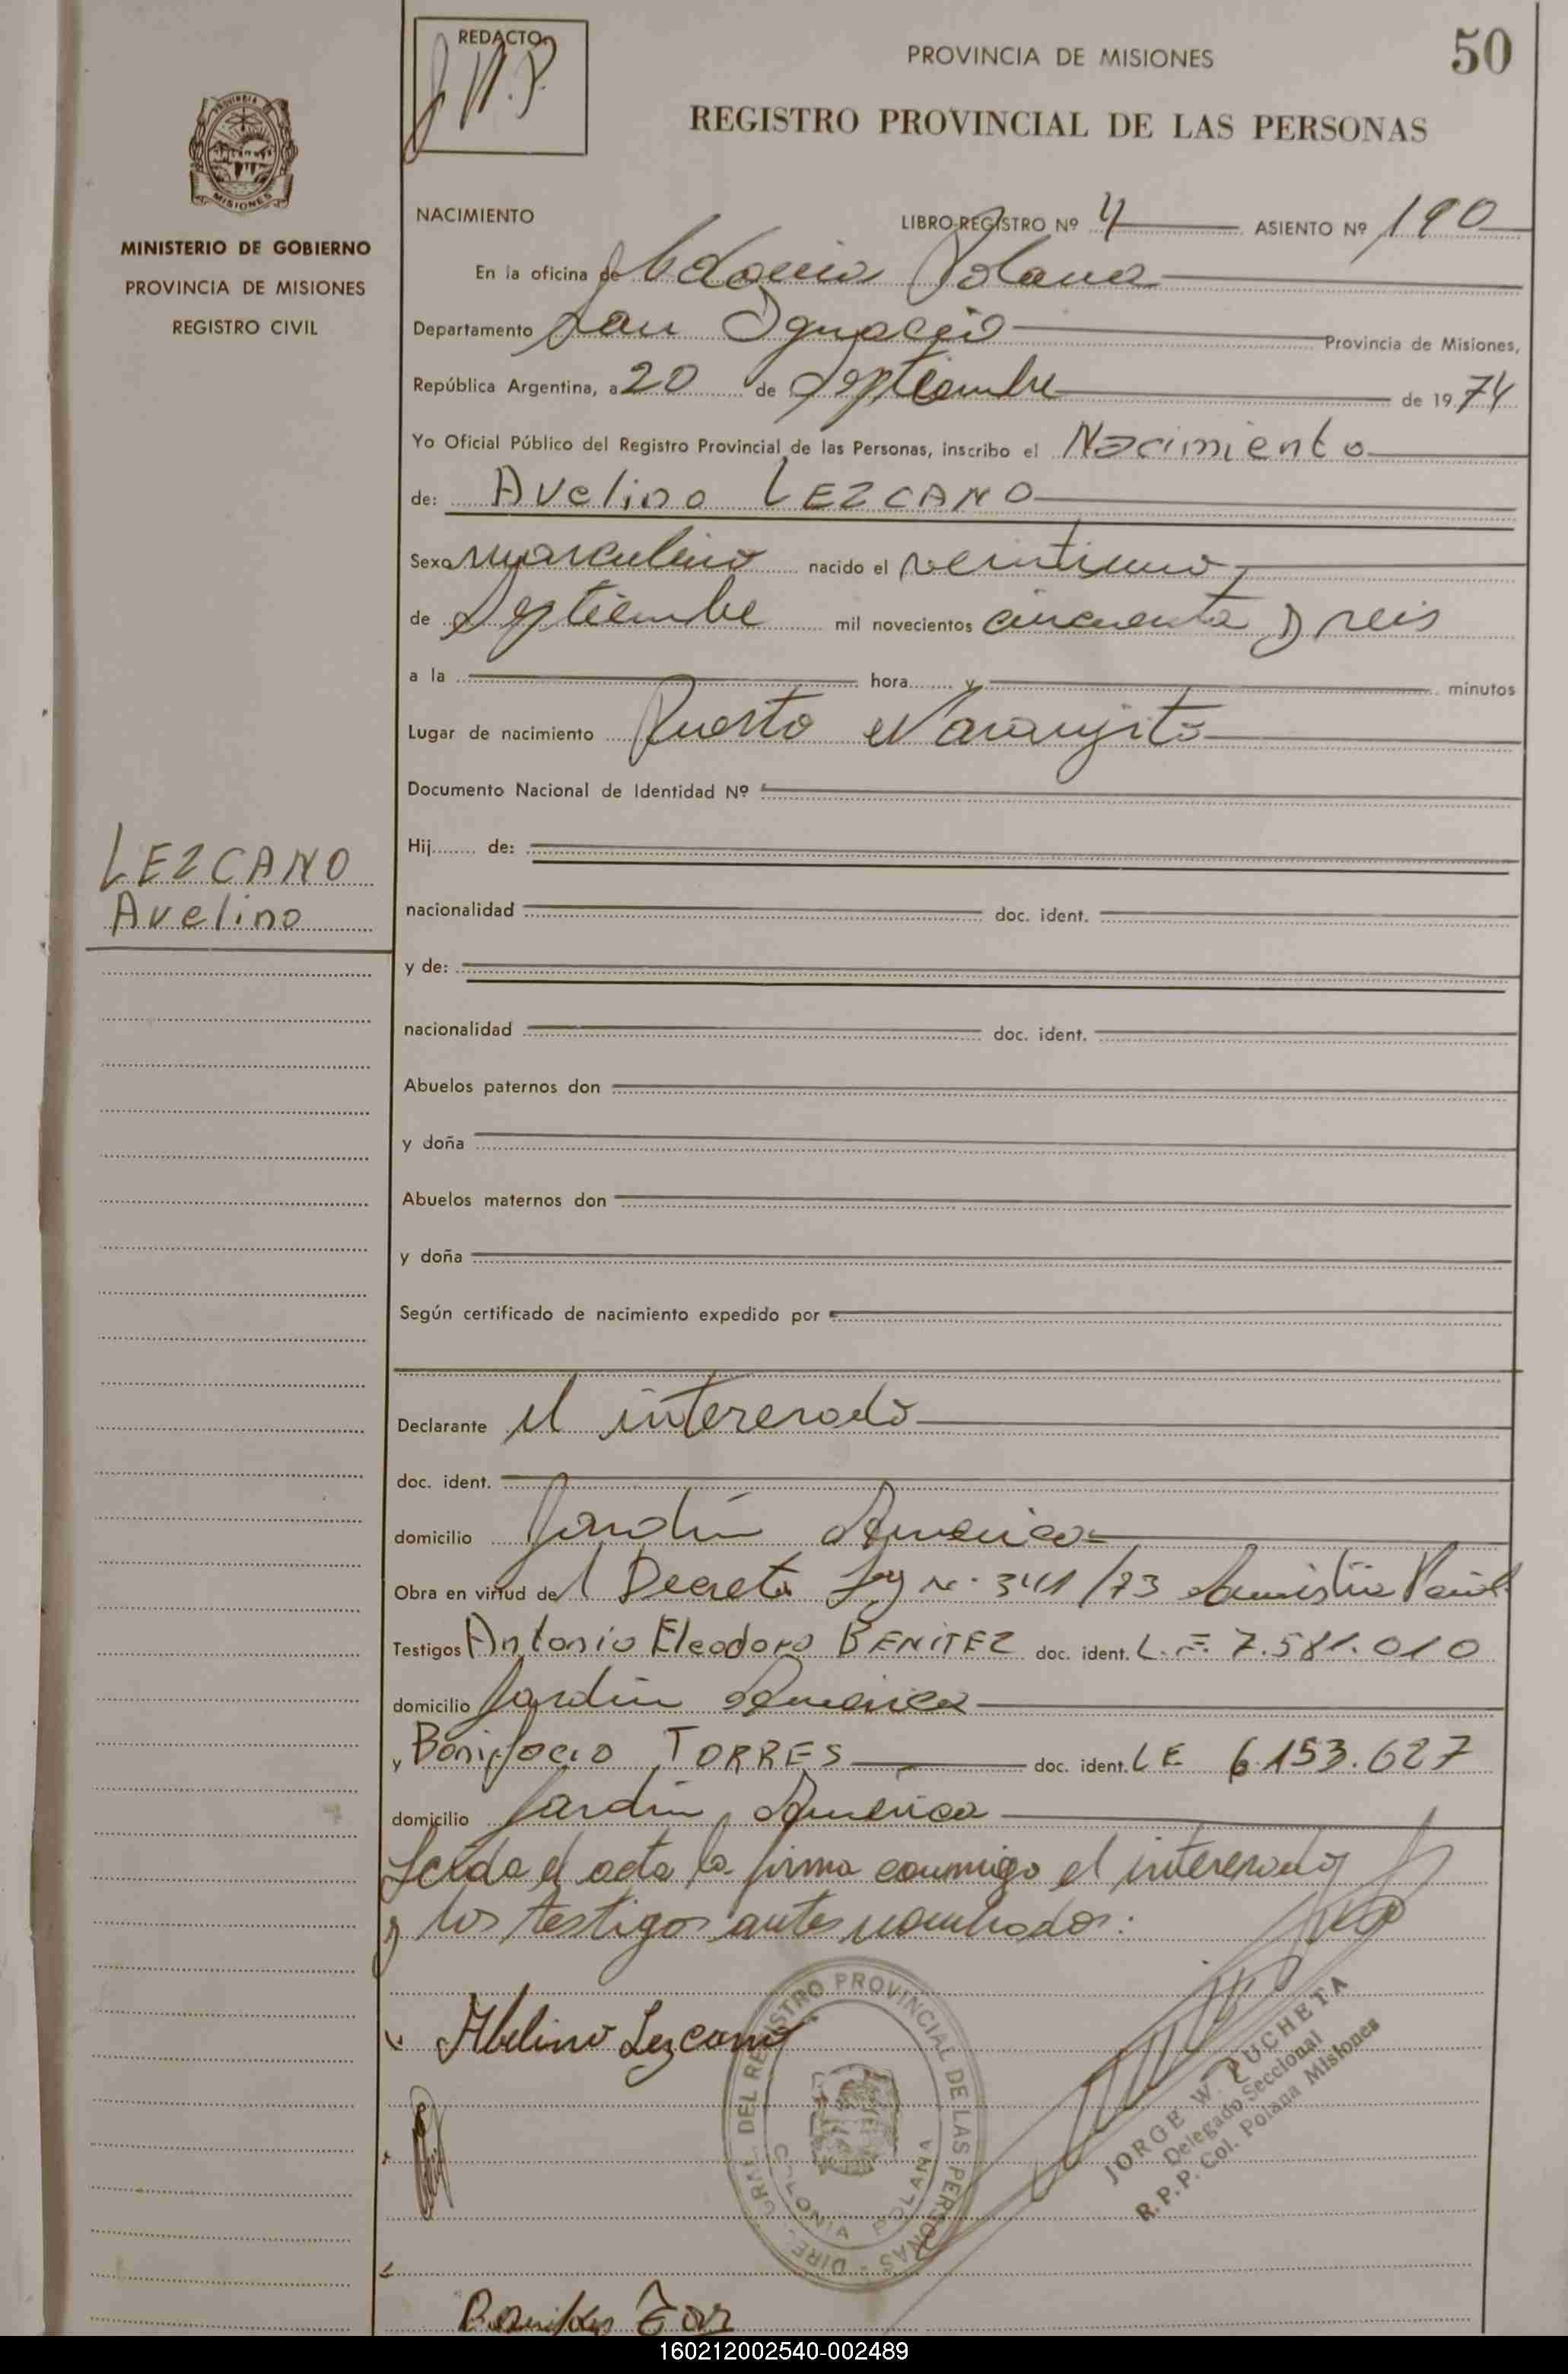 REDACTO
J.N.P.
PROVINCIA DE MISIONES
50
REGISTRO PROVINCIAL DE LAS PERSONAS
PROVINCIA DE
MISIONES
MINISTERIO DE GOBIERNO
PROVINCIA DE MISIONES
REGISTRO CIVIL
NACIMIENTO LIBRO-REGISTRO Nº 4 ASIENTO Nº 190
En la oficina de Colonia Polana
Departamento San Ignacio Provincia de Misiones,
República Argentina, a 20 de Septiembre de 1974
Yo Oficial Público del Registro Provincial de las Personas, inscribo el Nacimiento
de: Avelino LEZCANO
Sexo masculino nacido el veintiuno
de Septiembre mil novecientos cincuenta y seis
a la hora y minutos
Lugar de nacimiento Puerto Naranjito
Documento Nacional de Identidad Nº
LEZCANO
Avelino
Hij de:
nacionalidad doc. ident.
y de:
nacionalidad doc. ident.
Abuelos paternos don
y doña
Abuelos maternos don
y doña
Según certificado de nacimiento expedido por
Declarante el interesado
doc. ident.
domicilio Jardín America
Obra en virtud del Decreto Ley Nº 341/73 Amnistía
Testigos Antonio Eleodoro BENITEZ doc. ident. L.E. 7.581.010
domicilio Jardín America
y Bonifacio TORRES doc. ident. LE 6.153.627
domicilio Jardín América
Leída el acta la firma conmigo el interesado
y los testigos antes nombrados:
Abelino Lezcano
DIRE. GRAL. DEL REGISTRO PROVINCIAL DE LAS PERSONAS
COLONIA POLANA
JORGE W. PUCHETA
Delegado Seccional
R.P.P. Col. Polana Misiones
160212002540-002489